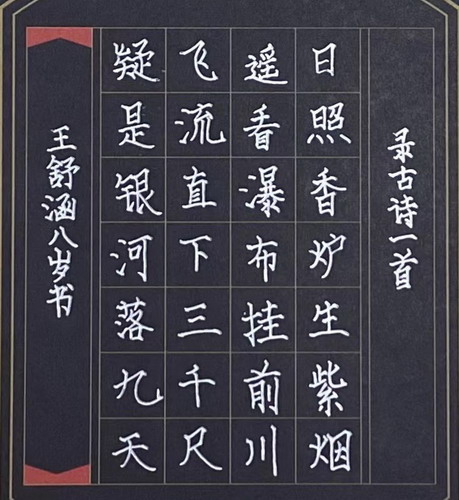 录古诗一首
日照香炉生紫烟
遥看瀑布挂前川
飞流直下三千尺
疑是银河落九天
王舒涵八岁书